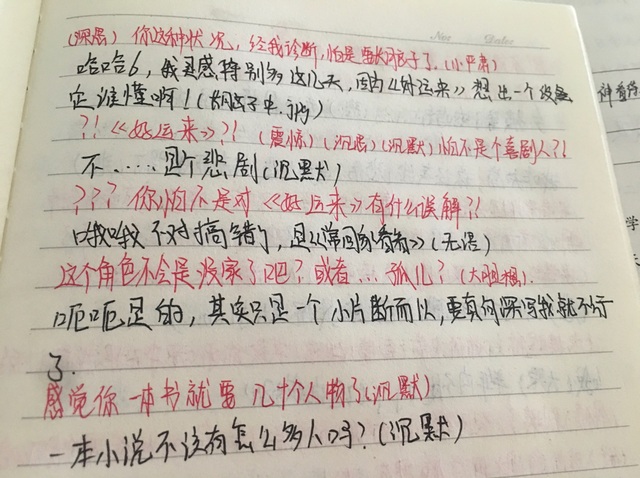 (深思) 你这种状况,经我诊断,怕是要长脑子了。(小严肃)
哈哈6,我灵感特别多这几天,因为《好运来》想出一个设
定谁懂啊!(长脑子中.jpg)
?!《好运来》?!(震惊)(沉思)(沉默)怕不是个喜剧人?!
不……是个悲剧(沉默)
???你怕不是对《好运来》有什么误解?!
哦哦不对搞错了,是《常回家看看》(无语)
这个角色不会是没家了吧?或者…孤儿?(大胆想)
呃呃是的,其实只是一个小片断而以,要真向深写我就不行
了.
感觉你一本书就要几十个人物了(沉默)
一本小说不该有怎么多人吗?(沉默)
Date